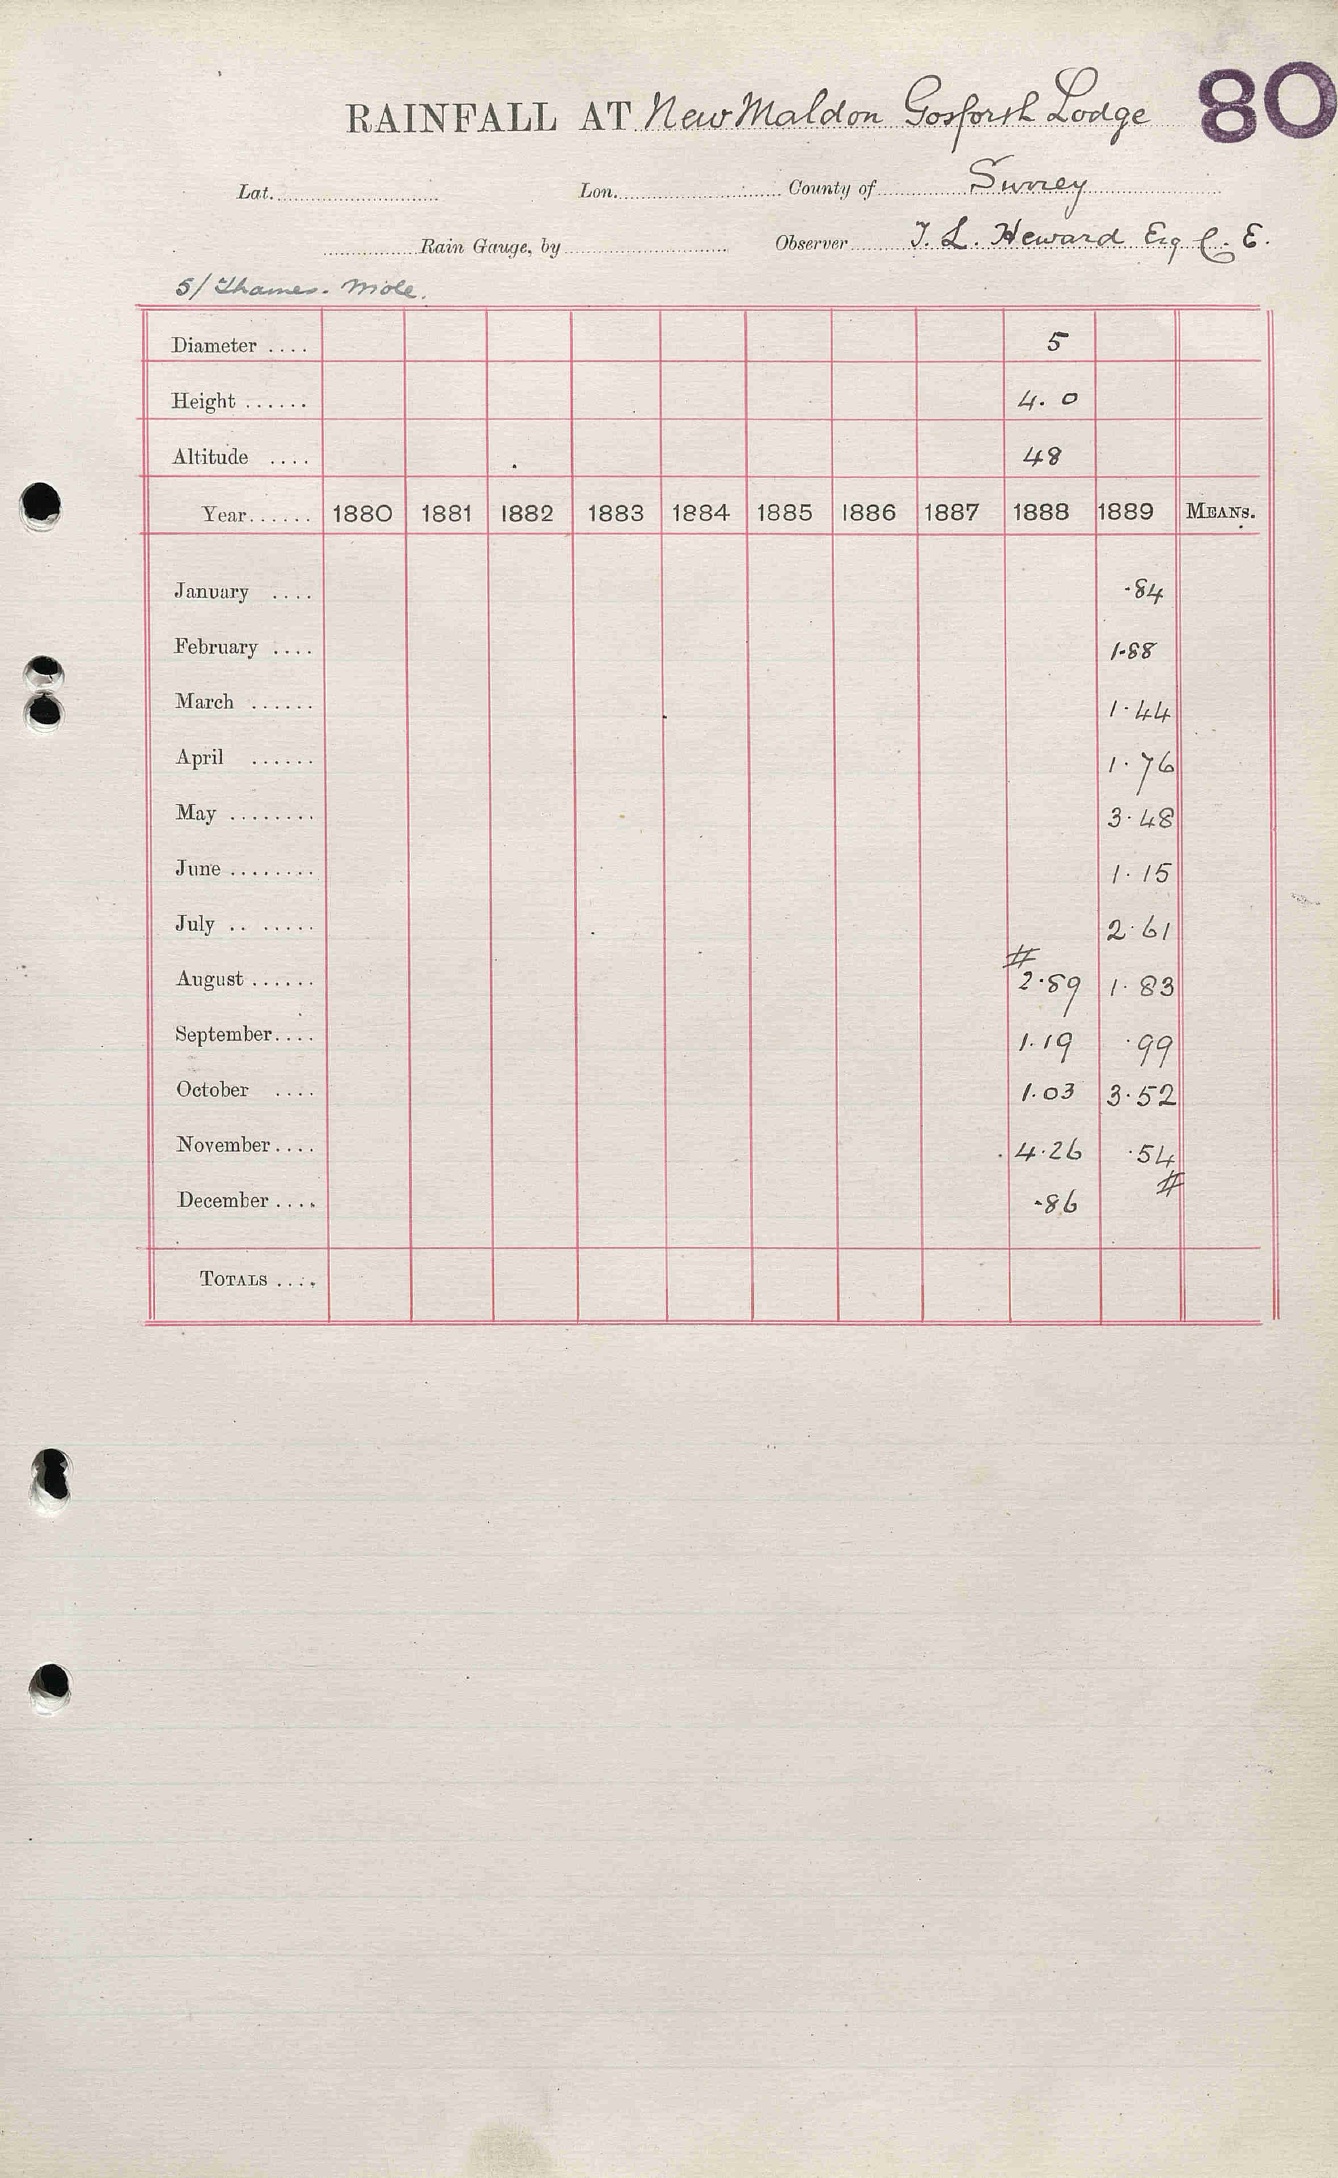 80
RAINFALL AT New Maldon Gosforth Lodge
Lat. Lon. County of Surrey
Rain Gauge, by Observer T. L. Heward Esq C. E.
5/ Thames. Mole.
Diameter .... 5
Height ...... 4.0
Altitude .... 48
Year...... 1880 1881 1882 1883 1884 1885 1886 1887 1888 1889 MEANS.
January .... .84
February .... 1.88
March ...... 1.44
April ...... 1.76
May ........ 3.48
June ........ 1.15
July .. ..... 2.61
#
August ...... 2.89 1.83
September.... 1.19 .99
October .... 1.03 3.52
November.... 4.26 .54
December .... .86 #
TOTALS ....